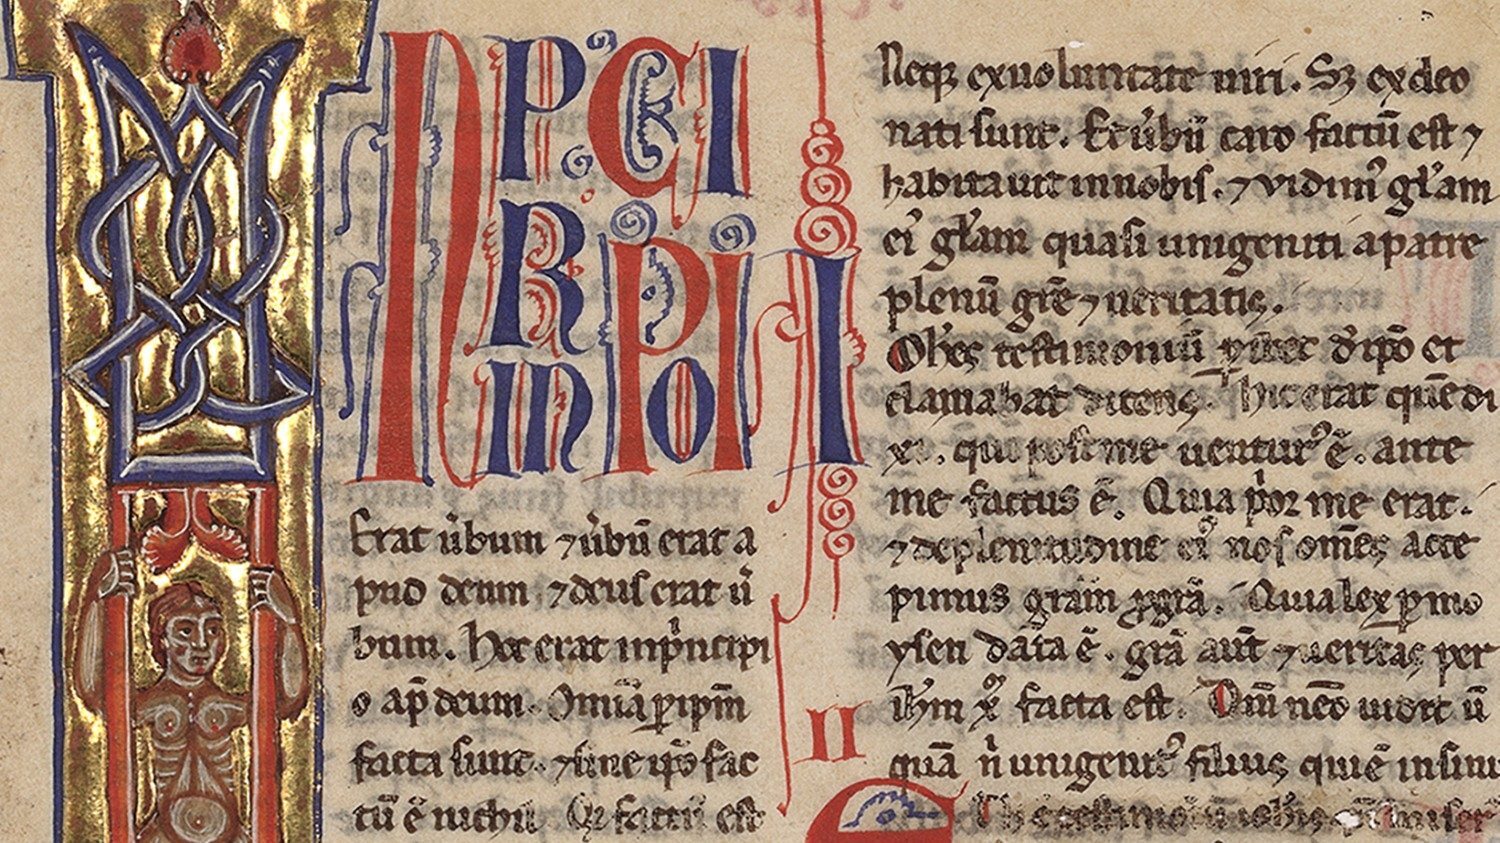 IN PRINCIPIO
Erat ůbum ⁊ůbū erat a
pud deum ⁊deus erat ů
bum. Hoc erat inpͥncipi
o ap̄ deum. Omīa ꝑip̄m
facta sunt. ⁊sine ip̄o fac
tū ē nichil. Qͦ factū est
I
Neqꝫ exuoluntate uiri. Sꝫ exdeo
nati sunt. Et ůbū caro factū est ⁊
habitauit innobis. ⁊ vidimꝰ gl̄am
eiꝰ gl̄am quasi unigeniti apatre
plenū gr̄e ⁊ueritatis.
Ioh̄es testimoniū ꝑhibet dip̄o et
clamabat dicens. hic erat quē di
xi. qui post me uenturꝰ ē. ante
me factus ē. Quia pͥor me erat.
⁊deplenitudine eiꝰ nos om̄es acce
pimus grām ꝓgrā. Quia lex ꝑmo
ysen data ē. grā aūt ⁊ueritas per
ih̄m xͫ facta est. Dm̄ nēo uidit ū
II
quā nͥ unigenitꝰ filius qui ē insinu